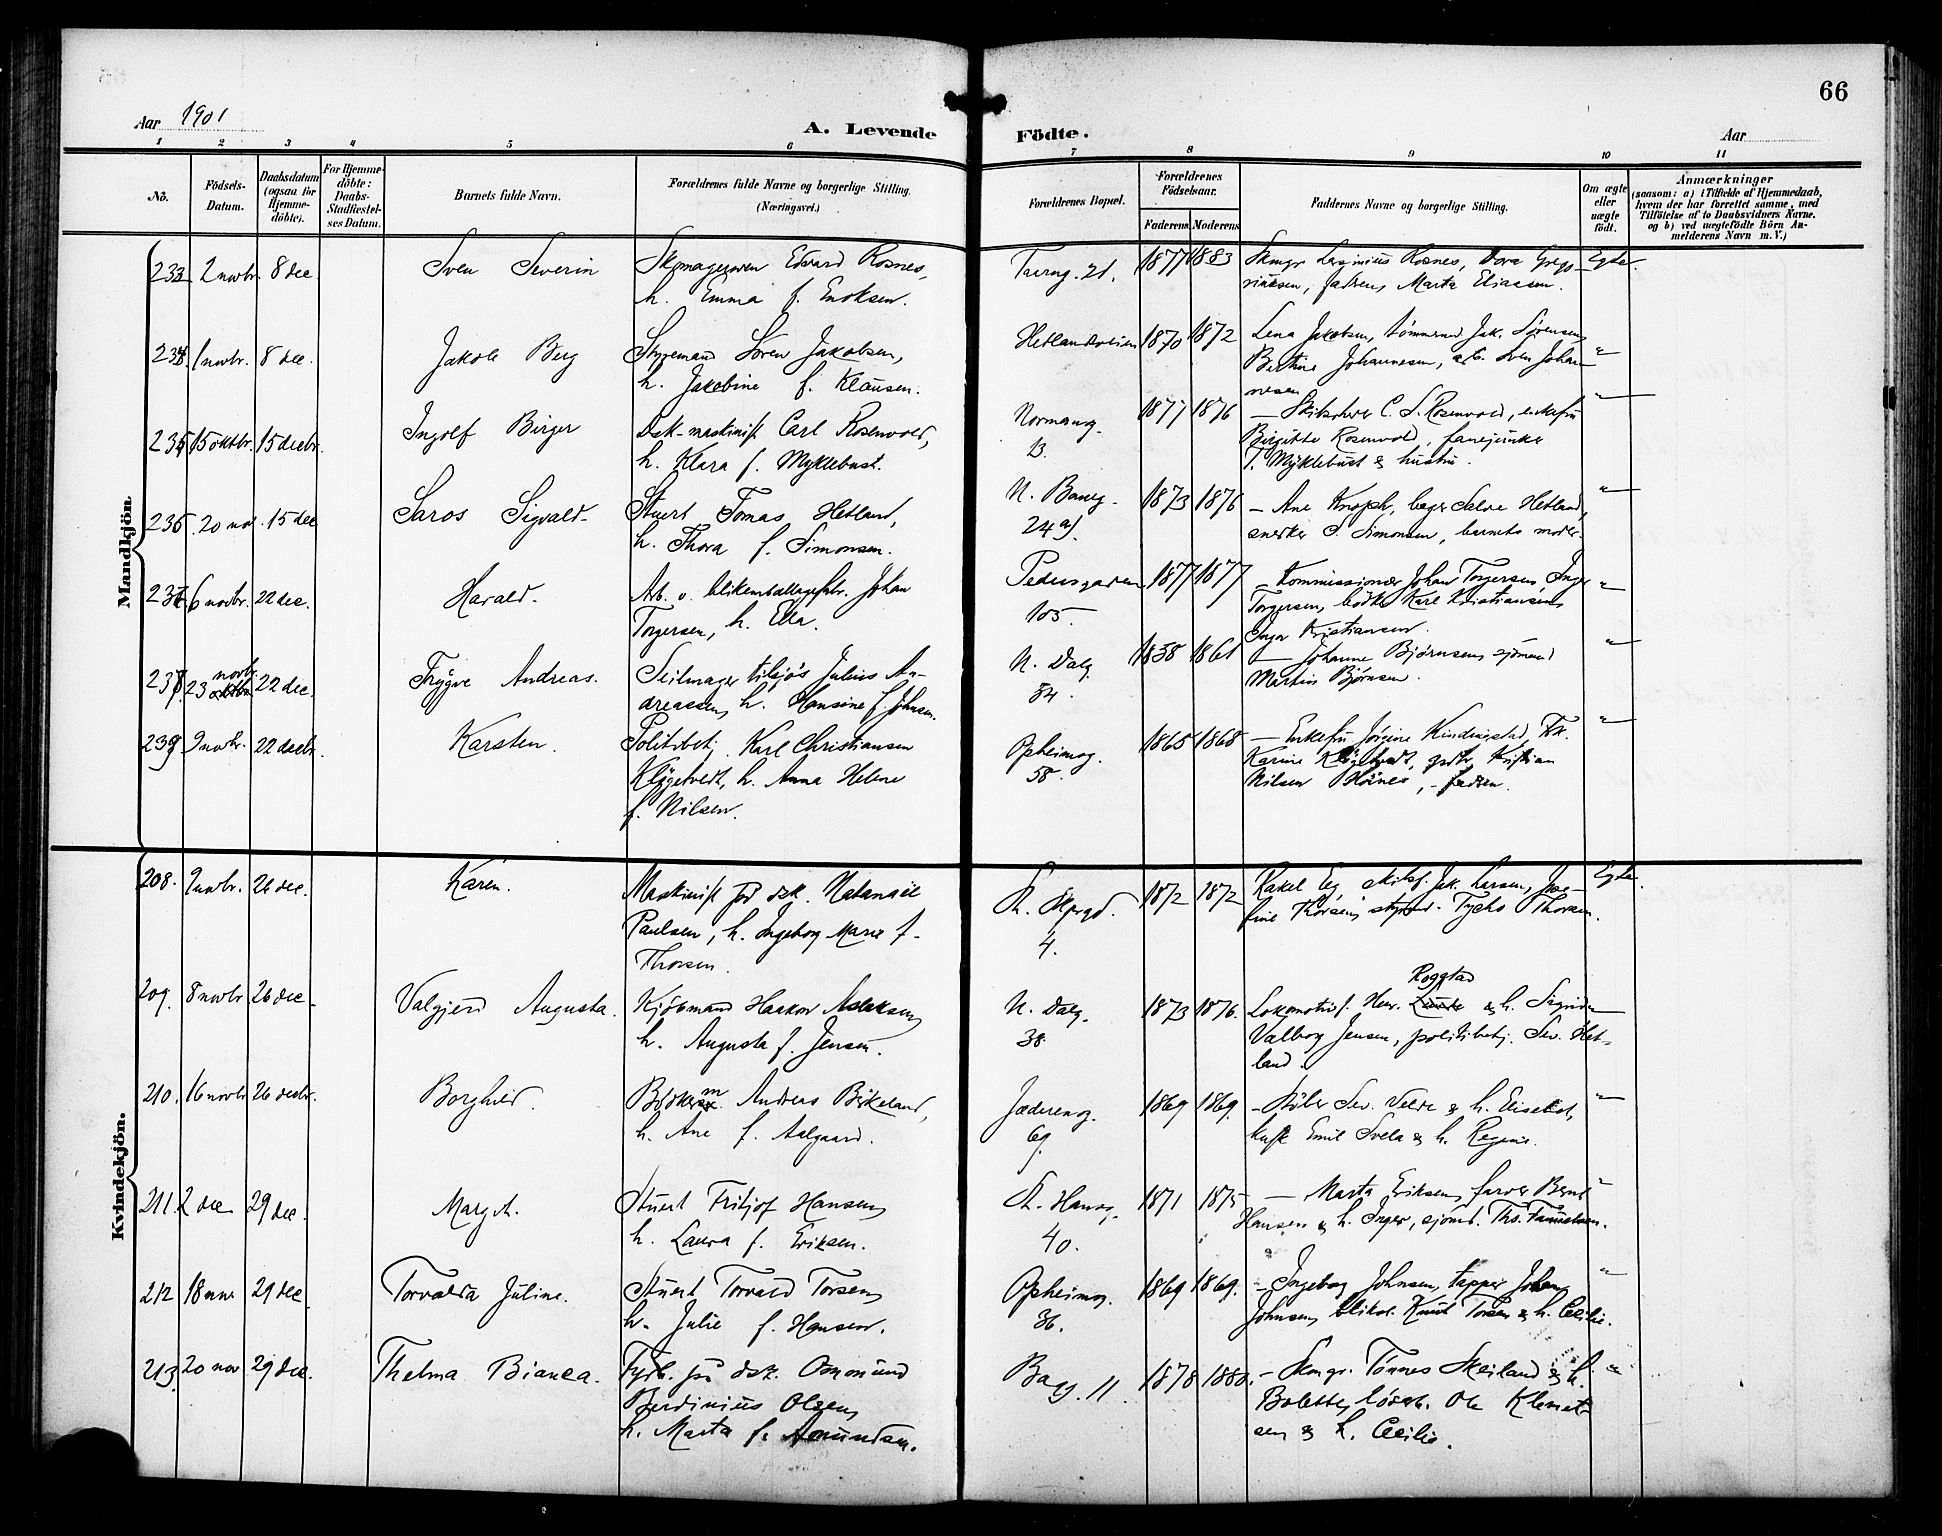 66
Aar 1901
A. Levende Födte.
Aar
1 2 3 4 5 6 7 8 9 10 11
No.
Födsels-Datum.
Daabsdatum (ogsaa for Hjemme-döbte).
For Hjemme-döbte: Daabs-Stadfæstelses Datum.
Barnets fulde Navn.
Forældrenes fulde Navne og borgerlige Stilling. (Næringsvei.)
Forældrenes Bopæl.
Forældrenes Födselsaar.
Faderens Moderens
Faddernes Navne og borgerlige Stilling.
Om ægte eller uægte födt.
Anmærkninger
(saasom: a) i Tilfælde af Hjemmedaab, hvem der har forrettet samme, med Tilföielse af to Daabsvidners Navne, og b) ved uægtefödte Börn Anmelderens Navn m. V.)
Mandkjön
233 2 novbr. 8 dec
Sven Severin
Edvard Rosnes,
h. Emma f. Enoksen.
21. 1877 1883
Rosnes, Dora Greg-
Marta Eliassen.
Egte.
234 1 novbr. 8 dec.
Jakob Berg
Styrmand Sören Jakobsen,
h. Jakobine f. Klausen.
Hetlandsveien 1870 1872
Lena Jakobsen, tömmermd Jak. Sörensen,
Bertine Johannesen, arb. Sven Johan-
nesen
"
235 15 oktbr. 15 decbr.
Ingolf Birger
Dsk-maskinist Carl Rosenvold,
h. Klara f. Myklebust.
Normansg.
13.
1877 1876
C. S. Rosenvold, enkefru
Birgitte Rosenvold, fanejunker
T. Myklebust & hustru.
"
236 20 nov. 15 dec
Saros Sigvald
Stuert Tomas Hetland,
h. Thora f. Simonsen.
N. Baneg.
24 a).
1873 1876
Ane Knoph, bager Salve Hetland,
snedker S. Simonsen, barnets moder.
"
237 6 novbr. 22 dec.
Harald.
Arb. v. blikemballagefabr. Johan
Torgersen, h. Ella.
Pedersgaden
105.
1877 1877
Kommissionær Johan Torgersen, Inger
Torgersen, bödk Karl Kristiansen,
Inger Kristiansen.
"
238 23 novbr. 22 dec.
Trygve Andreas.
Seilmager tilsjös Julius An-
dreassen, h. Hansine f. Johnsen.
N. Dalg.
34.
1858 1861
Johanne Björnsen, sjömand
Martin Björnsen.
"
239 9 novbr. 22 decbr.
Karsten.
Politibetj. Karl Christiansen
Klögetvedt, h. Anna Helene
f. Nilsen.
Opheimsg.
58.
1865 1868
Enkefru Jörgine Kindingstad, Frk.
Karine Klögetvedt, gdbr. Kristian
Nilsen Hörnes, fadren.
"
Kvindekjön.
208. 2 novbr. 26 dec.
Karen.
Maskinist på dsk. Natanael
Paulsen, h. Ingeborg Marie f.
Thorsen.
4.
1872 1872
Rakel Eeg, skibsf. Jak. Larsen, Jose-
fine Thorsen, styrmd. Tycho Thorsen.
Egte.
209. 8 novbr 26 dec
Valgjerd Augusta.
Kjöbmand Haakon Aslaksen,
h. Augusta f. Jensen.
N. Dalg.
38.
1873 1876.
Roggtad
Lokomotivf. Henr. Lunde & h. Sigrida
Valborg Jensen, politibetj. Sev. Het-
land.
"
210. 16 novbr 26 decbr.
Borghild.
Andreas Birkeland,
h. Ane f. Aalgaard.
Jæderensg.
69.
1869 1869.
Sev. Velde & h. Elisabet,
Emil Svela & h. Regine.
"
211. 2 dec 29 dec.
Margit.
Stuert Fritjof Hansen,
h. Laura f. Eriksen.
St. Hansg.
40.
1871 1875
Marta Eriksen, farver Bernt
Hansen & h. Inger, sjömd. Ths. Samuelsen.
"
212 18 nov 29 dec
Torvalda Juline.
Stuert Torvald Torsen,
h. Julie f. Hansen.
Opheimsg.
36.
1869 1869.
Ingeborg Johnsen, tapper Johan
Johnsen, Knut Torsen & h. Cecilie.
"
213. 20 nov 29 dec.
Thelma Bianca.
Fyrb. på dsk. Osmund
Berdinius Olsen,
h. Marta f. Amundsen.
Bagg. 11. 1878 1880.
Skmgr. Tönnes Skeiland & h.
Bolette, Ole Klemet-
sen & h. Cecilie.
"